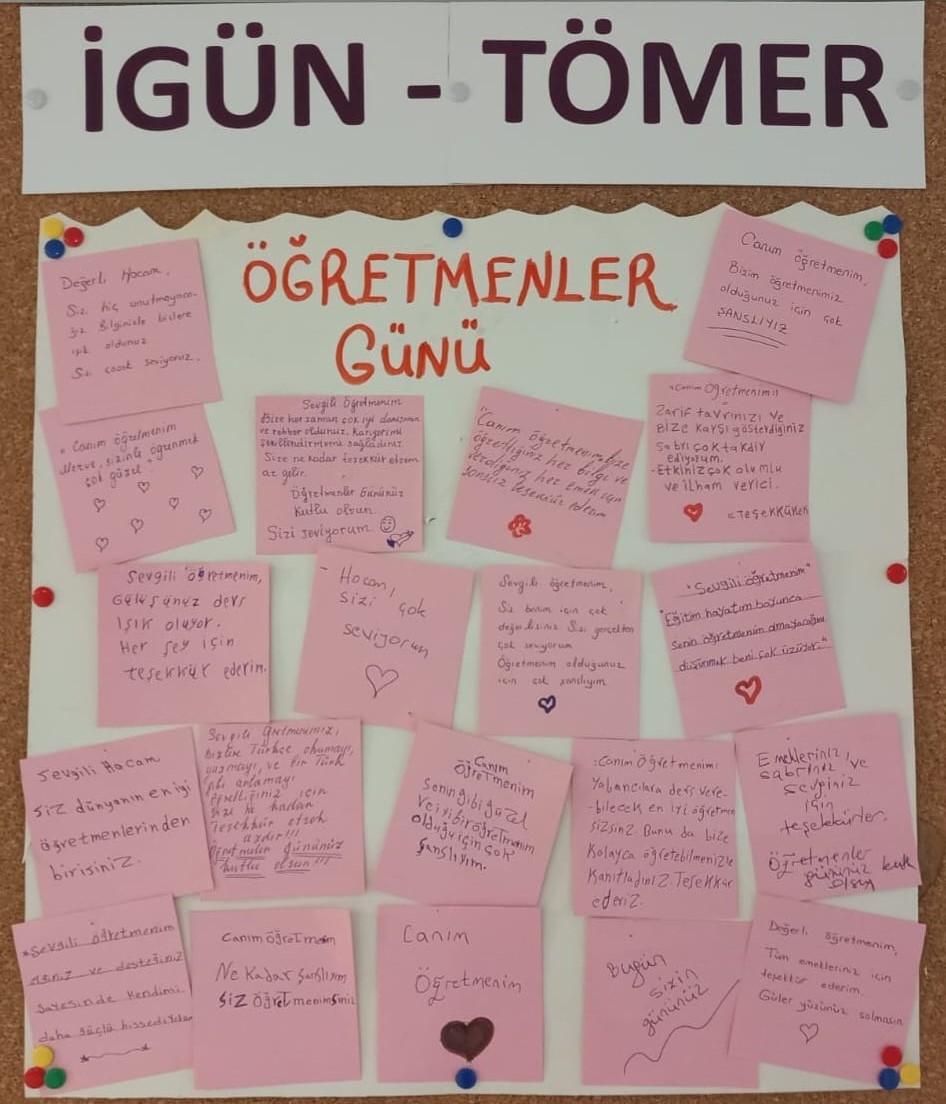 İGÜN - TÖMER
ÖĞRETMENLER
GÜNÜ
Değerli Hocam,
Sizi hiç unutmayaca-
ğız Bilginizle bizlere
ışık oldunuz
Sizi çoook seviyoruz.
Canım öğretmenim,
Bizim öğretmenimiz
olduğunuz için çok
ŞANSLIYIZ
" Canım öğretmenim
Merve, sizinle öğrenmek
çok güzel.
Sevgili Öğretmenim
Bize her zaman çok iyi danışman
ve rehber oldunuz. Kariyerimi
şekillendirmemi sağladınız.
Size ne kadar teşekkür etsem
az gelir.
Öğretmenler Gününüz
Kutlu olsun.
Sizi seviyorum.
"Canım öğretmenim bize
öğrettiğiniz her bilgi ve
verdiğiniz her emek için
sonsuz teşekkür ederim
"Canım Öğretmenim"
Zarif tavrınızı ve
Bize karşı gösterdiğiniz
sabrı çok takdir
ediyorum.
-Etkiniz çok olumlu
ve ilham verici.
=TEŞEKKÜRLER
Sevgili öğretmenim,
Gülüşünüz ders
ışık oluyor.
Her şey için
teşekkür ederim.
- Hocam,
sizi çok
seviyorum
Sevgili öğretmenim,
Siz benim için çok
değerlisiniz. Sizi gerçekten
çok seviyorum
Öğretmenim olduğunuz
için çok şanslıyım
"Sevgili öğretmenim"
"Eğitim hayatım boyunca
Senin öğretmenim olmayacağını
düşünmek beni çok üzüyor."
Sevgili Hocam
siz dünyanın en iyi
öğretmenlerinden
birisiniz.
Sevgili Öğretmenimiz,
Bizlere Türkçe okumayı,
yazmayı, ve bir Türk
gibi anlamayı
öğrettiğiniz için
size ne kadar
teşekkür etsek
azdır!!!
Öğretmenler gününüz
kutlu olsun!!!
Canım
öğretmenim
Senin gibi güzel
ve iyi bir öğretmenim
olduğu için çok
şanslıyım.
:Canım Öğretmenim:
Yabancılara ders vere-
-bilecek en iyi öğretmen
sizsiniz Bunu da bize
Kolayca öğretebilmenizle
Kanıtladınız. Teşekkür
ederiz.
Emekleriniz,
sabrınız ve
sevginiz
için
teşekkürler.
Öğretmenler
gününüz kutlu
olsun
"Sevgili öğretmenim
ve desteğiniz
sayesinde kendimi
daha güçlü hissediyorum
Canım öğretmenim
Ne Kadar şanslıyım
siz öğretmenimsiniz
Canım
Öğretmenim
Bugün
sizin
gününüz
Değerli öğretmenim,
Tüm emekleriniz için
teşekkür ederim.
Güler yüzünüz solmasın